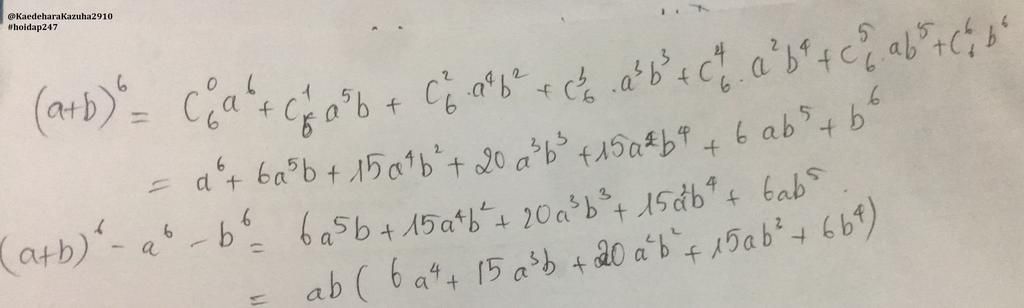 @KaedeharaKazuha2910
#hoidap247
(a+b)⁶ = C₆⁰a⁶ + C₆¹a⁵b + C₆²·a⁴b² + C₆³·a³b³ + C₆⁴·a²b⁴ + C₆⁵·ab⁵ + C₆⁶b⁶
= a⁶ + 6a⁵b + 15a⁴b² + 20a³b³ + 15a²b⁴ + 6ab⁵ + b⁶
(a+b)⁶ - a⁶ - b⁶ = 6a⁵b + 15a⁴b² + 20a³b³ + 15a²b⁴ + 6ab⁵.
= ab(6a⁴ + 15a³b + 20a²b² + 15ab³ + 6b⁴)